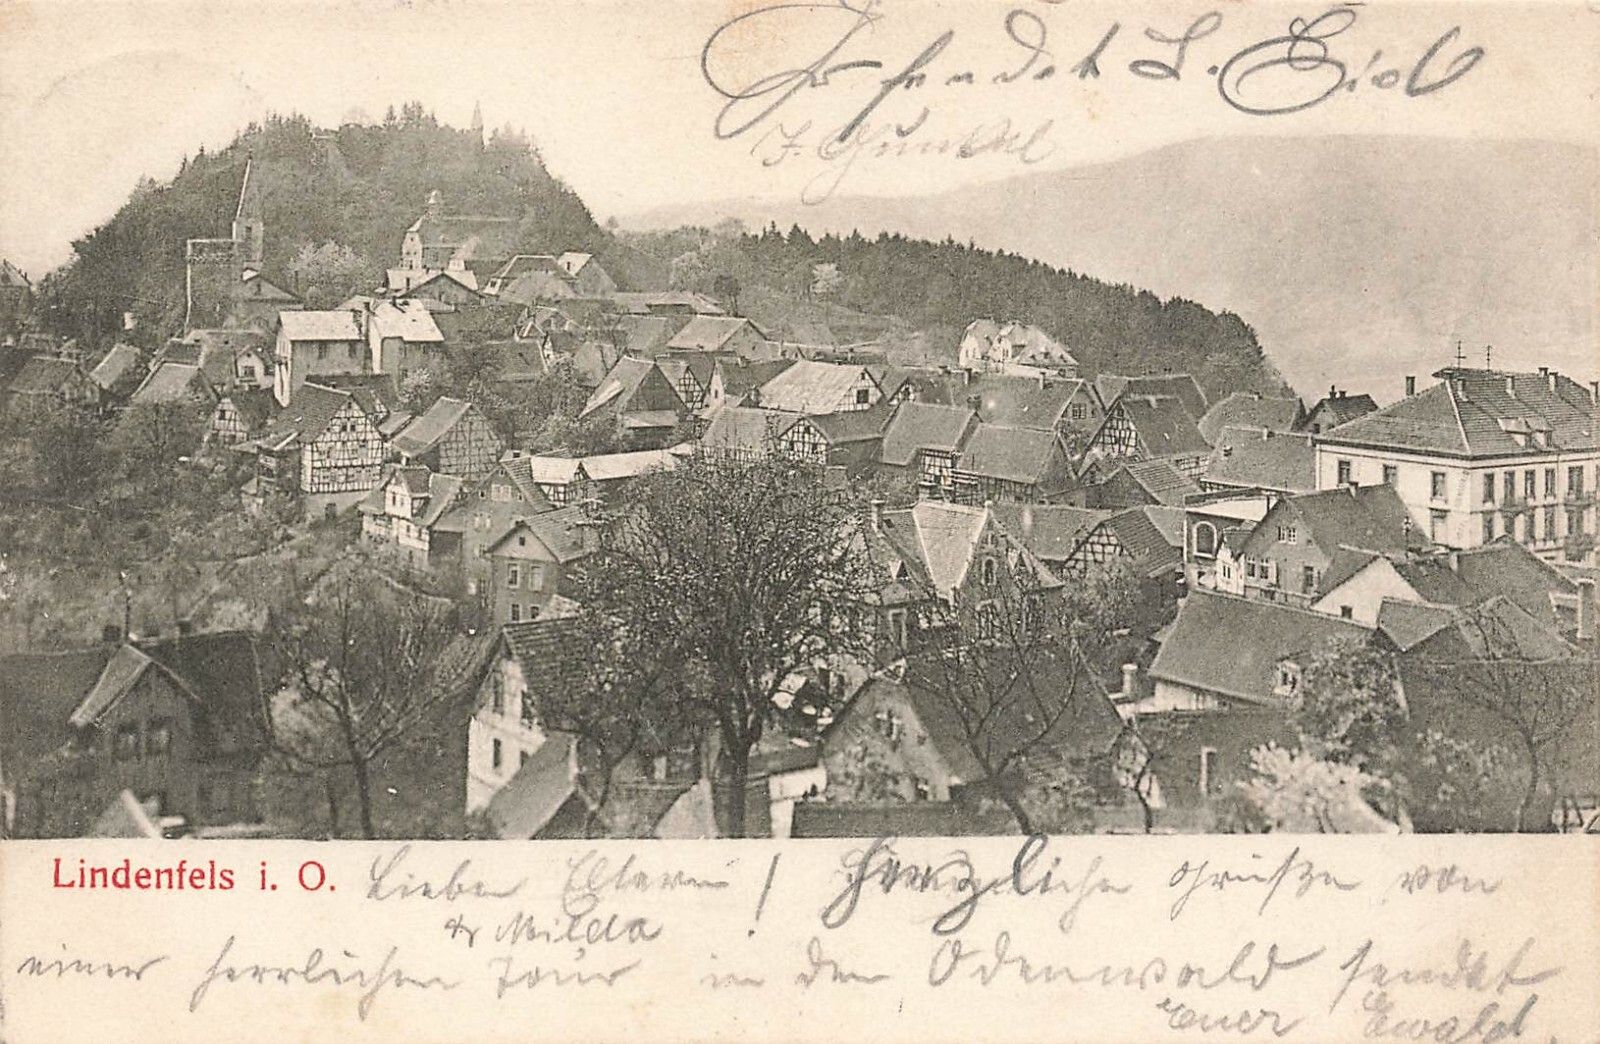 sendet L.
J. Gunkel
Lindenfels i. O. Liebe Eltern! Herzliche Grüße von
& Milda
einer herrlichen Tour in den Odenwald sendet
Euer Ewald.